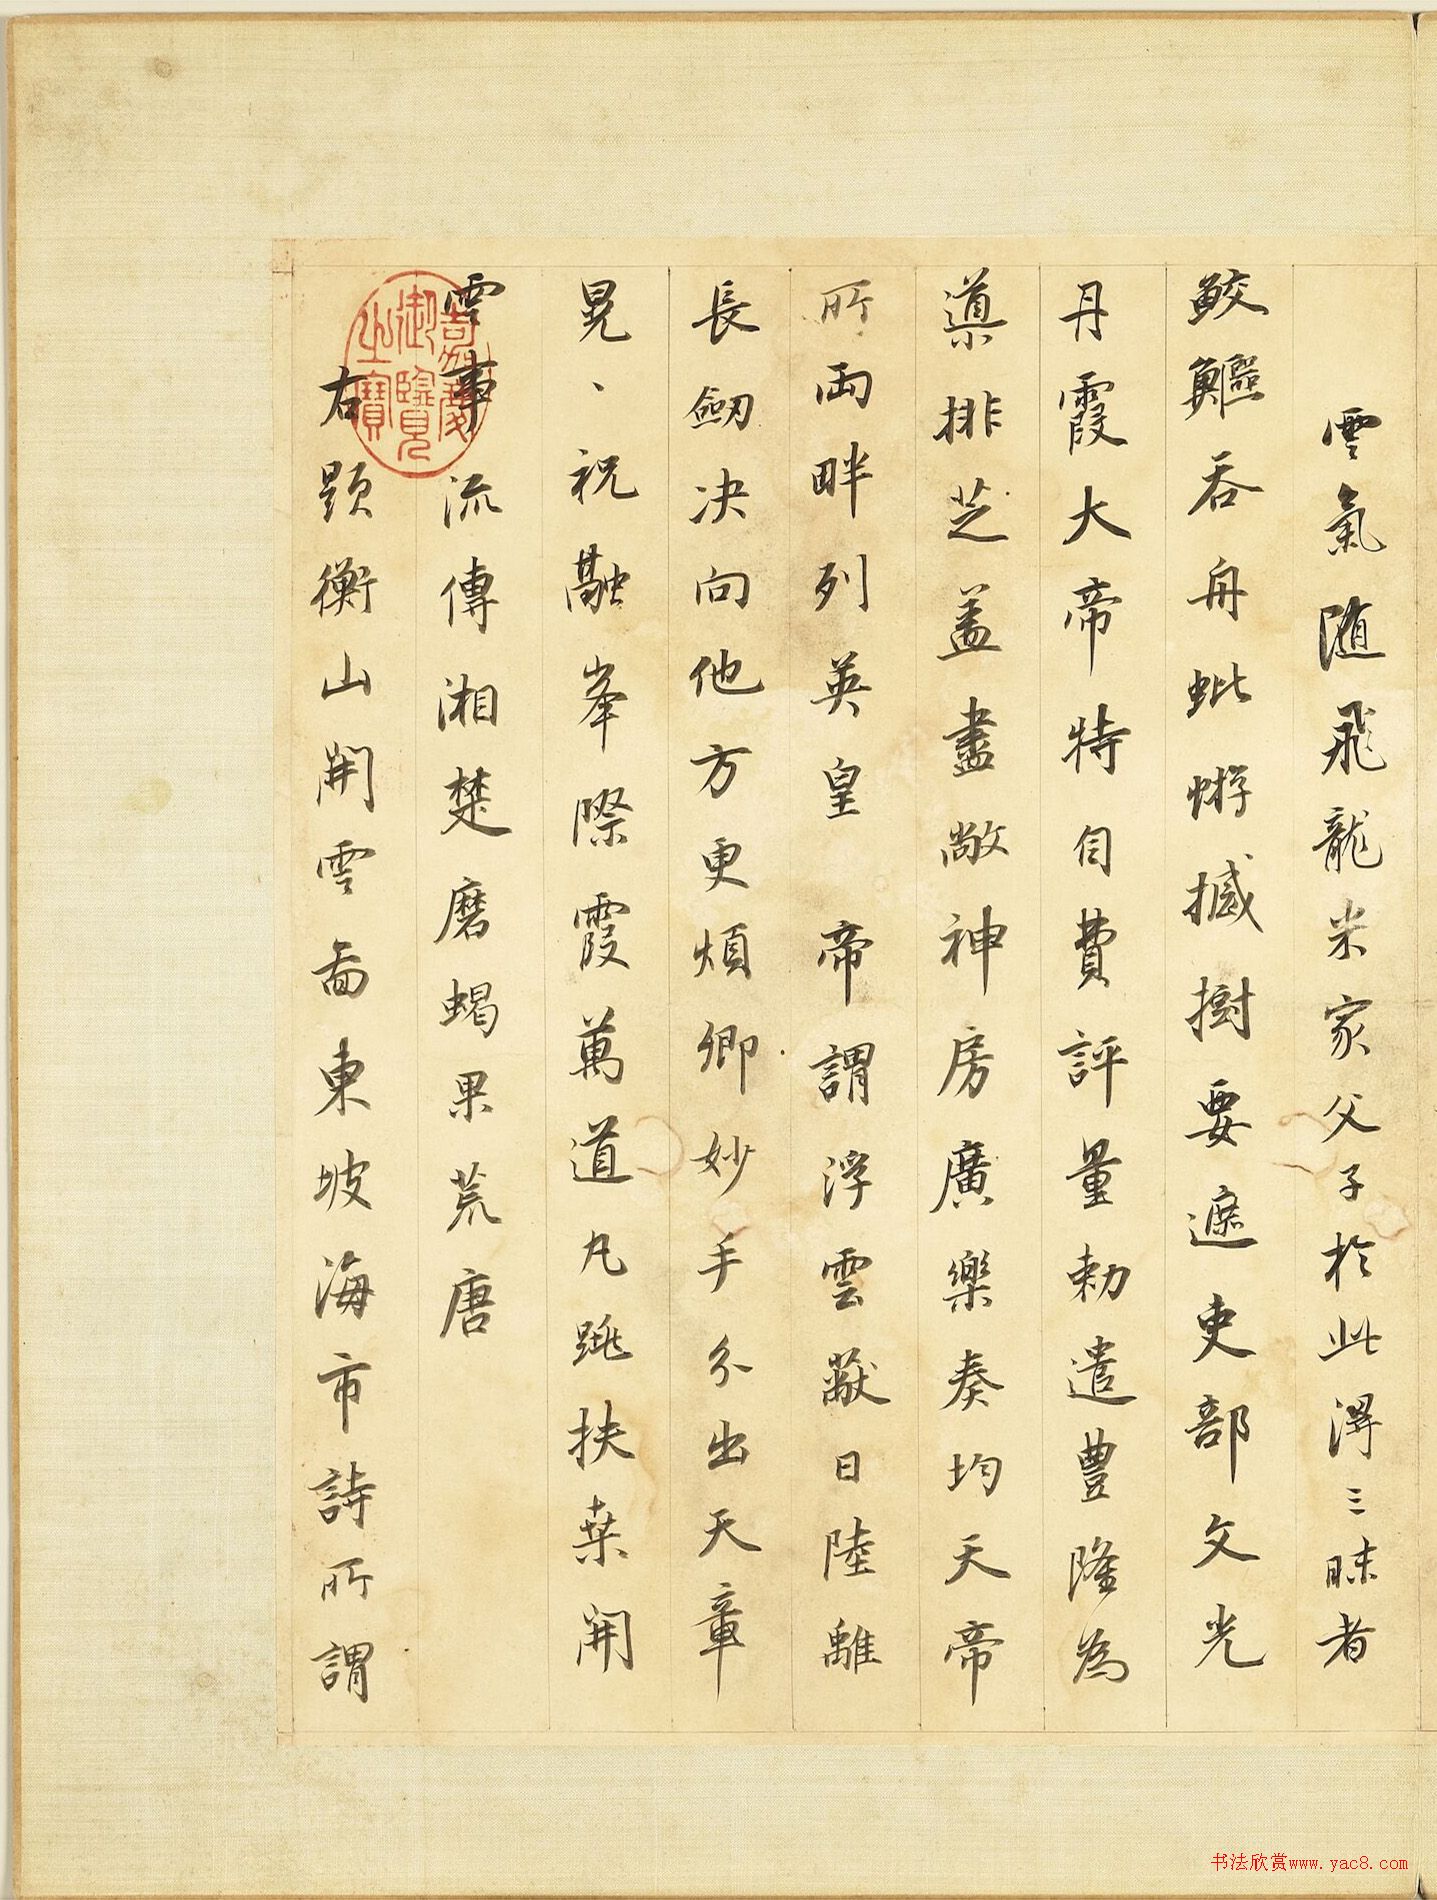 雲氣随飛龍米家父子於此淂三昧者
鮫鱷吞舟蚍蜉撼樹要遮吏部文光
丹霞大帝特自費評量勅遣豊隆為
導排芝盖盡敞神房廣樂奏均天帝
所兩畔列英皇 帝謂浮雲蔽日陸離
長劒决向他方更煩卿妙手分出天章
晃、祝融峯際霞萬道丸跳扶桒開
雲事流傳湘楚磨蝎果荒唐
右題衡山開雲啚東坡海市詩所謂
嘉慶御覽之寶
书法欣赏www.yac8.com